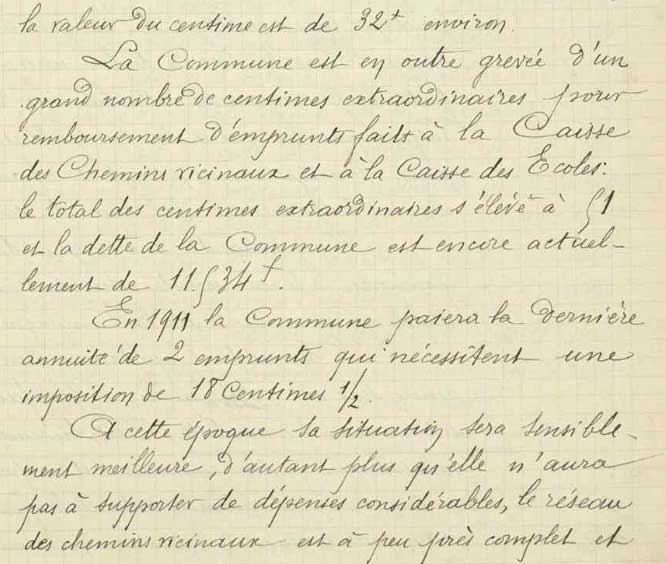 la valeur du centime est de 32f environ.
La Commune est en outre grevée d'un
grand nombre de centimes extraordinaires pour
remboursement d'emprunts faits à la Caisse
des Chemins vicinaux et à la Caisse des Ecoles:
le total des centimes extraordinaires s'élève à 51
et la dette de la Commune est encore actuel-
lement de 11.534f.
En 1911 la Commune paiera la dernière
annuité de 2 emprunts qui nécessitent une
imposition de 18 Centimes 1/2.
A cette époque sa situation sera sensible-
ment meilleure, d'autant plus qu'elle n'aura
pas à supporter de dépenses considérables, le réseau
des chemins vicinaux est à peu près complet et